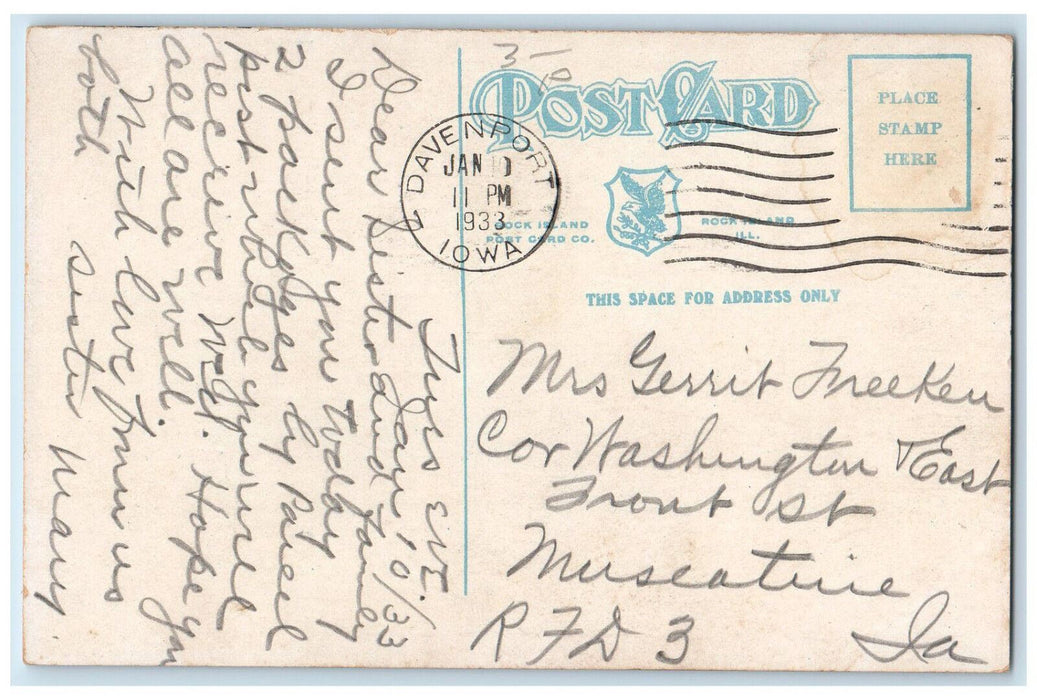 Tues eve.
Jan' 10/33
Dear Sister and family
I sent you today
2 packages by Parcel
post which you'll
receive Wed. Hope you
all are well.
With love from us
both
sister Mary.
3-
POST CARD
PLACE
STAMP
HERE
DAVENPORT
JAN 10
11 PM
1933
IOWA
ROCK ISLAND
POST CARD CO.
ROCK ISLAND
ILL.
THIS SPACE FOR ADDRESS ONLY
Mrs Gerrit Freeken
Cor Washington & East
Front St
Muscatine
RFD 3 Ia